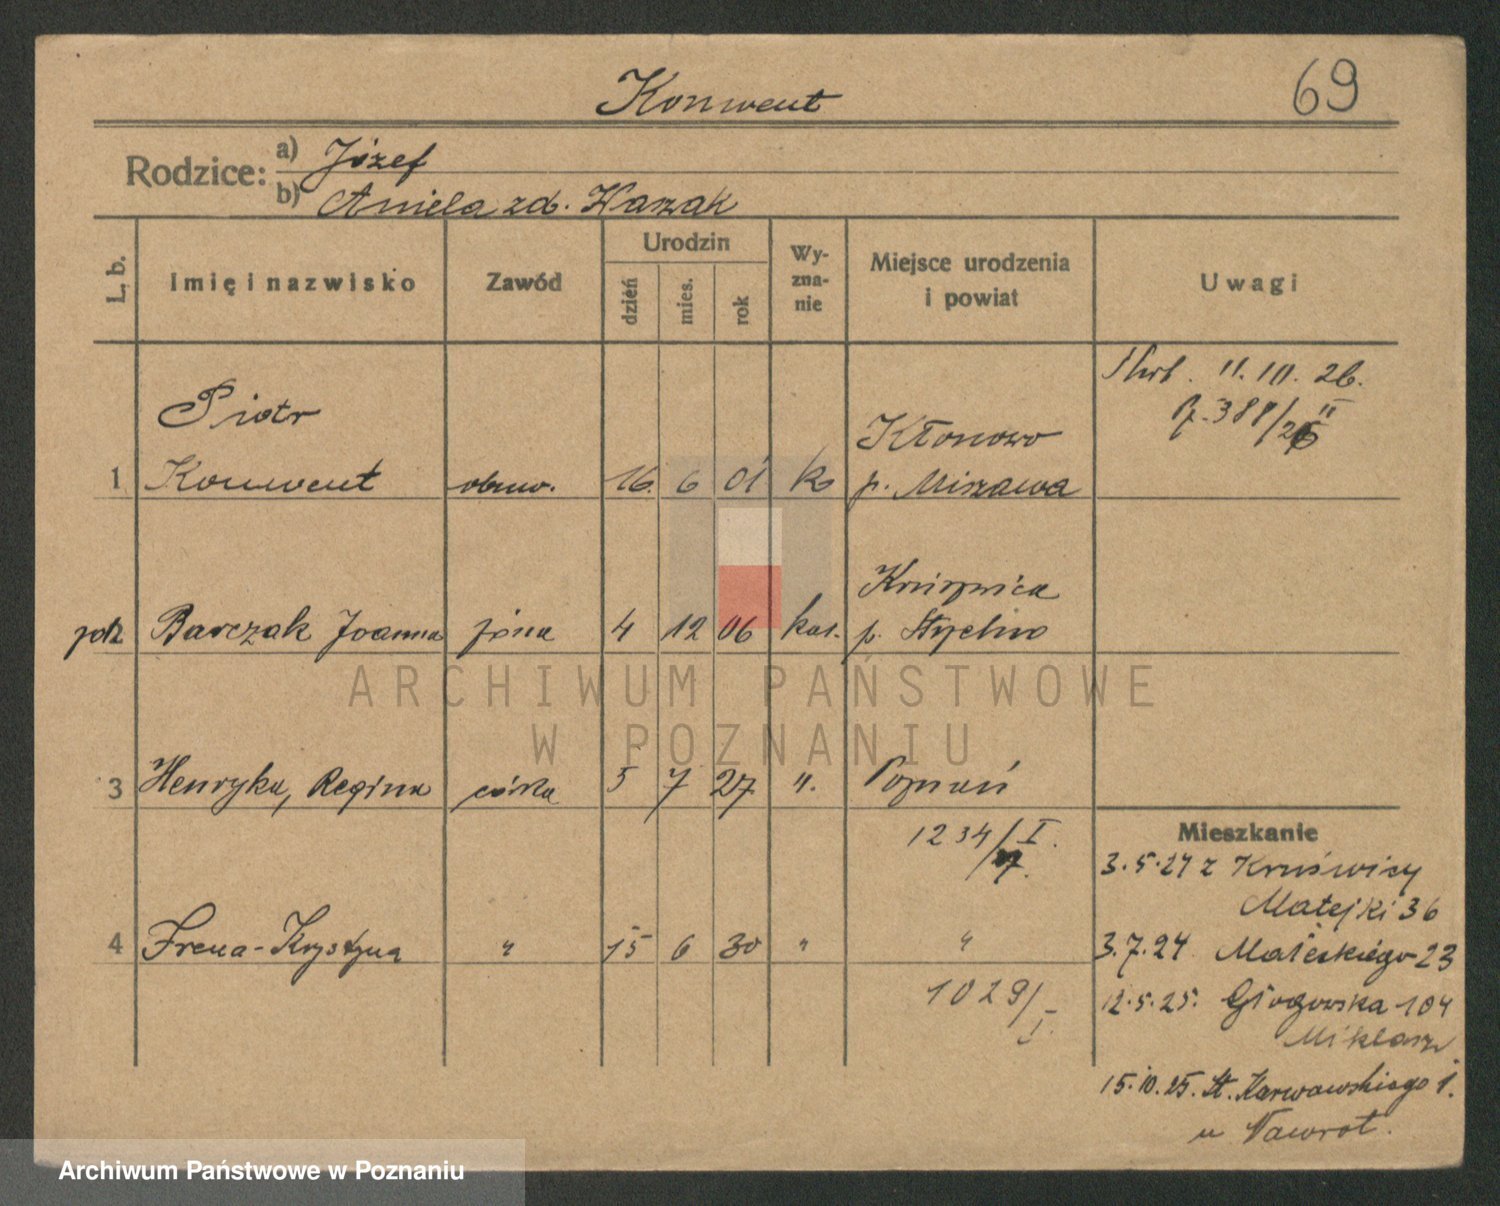 Konwent
69
Rodzice: a) Józef
b) Aniela zd. Waszak
L. b.
Imię i nazwisko
Zawód
Urodzin
dzień
mies.
rok
Wy-
zna-
nie
Miejsce urodzenia
i powiat
Uwagi
11. 10. 26.
Piotr
Kłonowo
1 Konwent obuw. 16. 6 01 k p. Miszawa
Barczak Joanna żona 4 12 06 kat.
3 Henryka, Regina córka 5 7 27 ". Poznań
1234/I.
27.
Mieszkanie
3.5.24 z Kruświcy
Matejki 36
4 Irena-Krystyna " 15 6 30 " "
3.7.24 Małeckiego 23
1029/I.
12.5.25. Głogowska 104
Miklasz
15.10.25. St. Karwowskiego 1.
u Nawrot.
ARCHIWUM PAŃSTWOWE
W POZNANIU
Archiwum Państwowe w Poznaniu